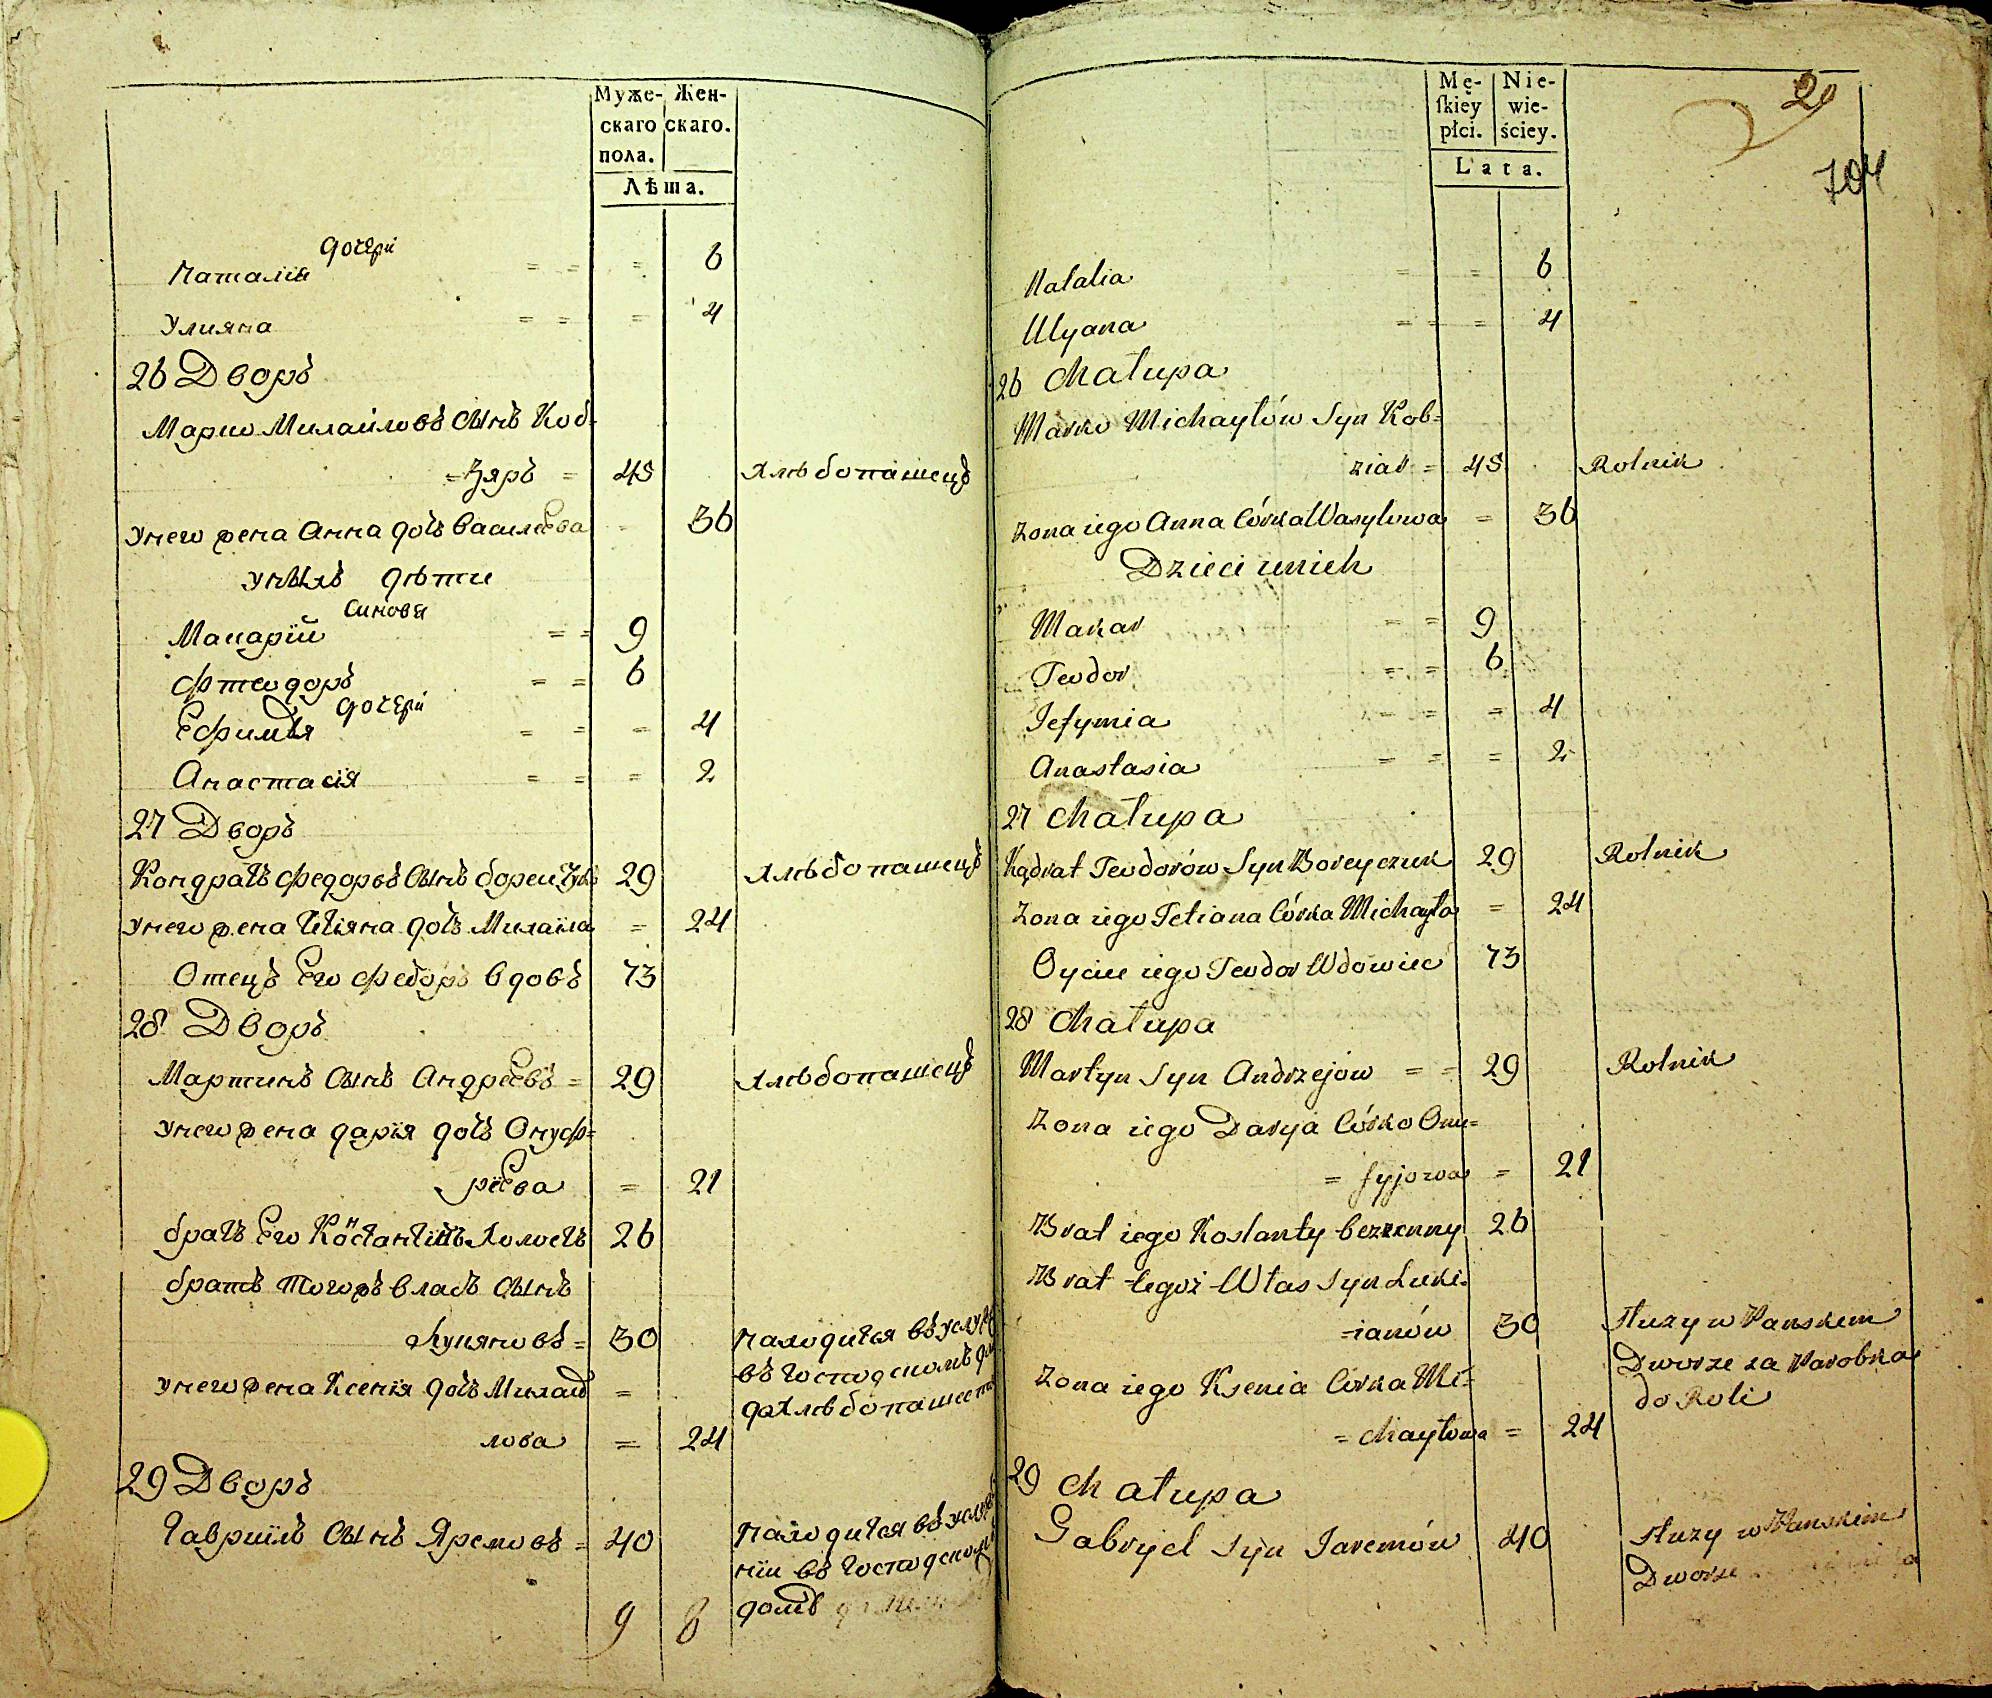 Муже- Жен-
скаго скаго.
пола.
Лѣта.
дочери
Наталія = = = 6
Улияна = = = 4
26 Дворъ
Марко Михайловъ Сынъ Коб-
=зяръ = 45 Хлѣбопашецъ
Унего жена Анна дочь Василѣева = 36
Унихъ дѣти
Синовя
Макарій = = 9
Фтеодоръ = = 6
дочери
Ефимія = = = 4
Анастасія = = = 2
27 Дворъ
Кондратъ Федоровъ Сынъ Борейчукъ 29 Хлѣбопашецъ
Унего жена Тетіяна дочь Михаила = 24
Отецъ Его Федоръ Вдовъ 73
28 Дворъ
Мартинъ Сынъ Андреевъ = 29 Хлѣбопашецъ
Унего жена Дарія дочь Онуф=
ріева = 21
братъ Его Константинъ Холостъ 26
братъ тогожъ Власъ Сынъ
Лукяновъ = 30 Находится въ услуж
Унего жена Ксенія дочь Михай = въ Господскомъ
лова = 24 Хлѣбопашест
29 Дворъ
Гавриілъ Сынъ Яремовъ = 40 Находится въ услуже
ніи въ Господском
9 8 домѣ
Mę- Nie-
ſkiey wie-
płci. ściey.
Lata.
20
704
Natalia = = 6
Ulyana = = = 4
26 Chałupa
Marko Michayłów Syn Kob=
ziar = 45 Rolnik
Zona iego Anna Córka Wasylowa = 36
Dzieci unich
Makar = = 9
Teodor = = 6
Jefymia = = = 4
Anastasia = = = 2
27 Chałupa
Kądrat Teodorów Syn Boreyczuk 29 Rolnik
Zona iego Tetiana Córka Michayło = 24
Oyciec iego Teodor Wdowiec 73
28 Chałupa
Martyn Syn Andrzejów = = 29 Rolnik
Zona iego Darya Córka Onu=
= fryjowa = 21
Brat iego Kostanty bezzenny 26
Brat tegoż Włas Syn Łuki-
=ianów 30 Służy w Panskim
Dworze za Parobka
Zona iego Ksenia Córka Mi= do Roli
= chayłowa = 24
29 Chałupa
Gabryel Syn Jaremów 40 Służy w Panskim
Dworze